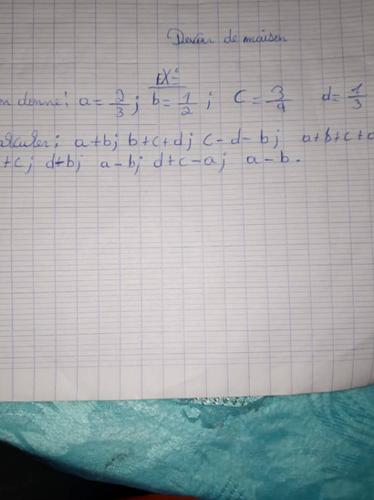 Devoir de maison
EX:
on donne; a = 2/3; b = 1/2; C = 3/4 d = 1/3
calculer; a+b; b+c+d; c-d-b; a+b+c+d
+c; d+b; a-b; d+c-a; a-b.